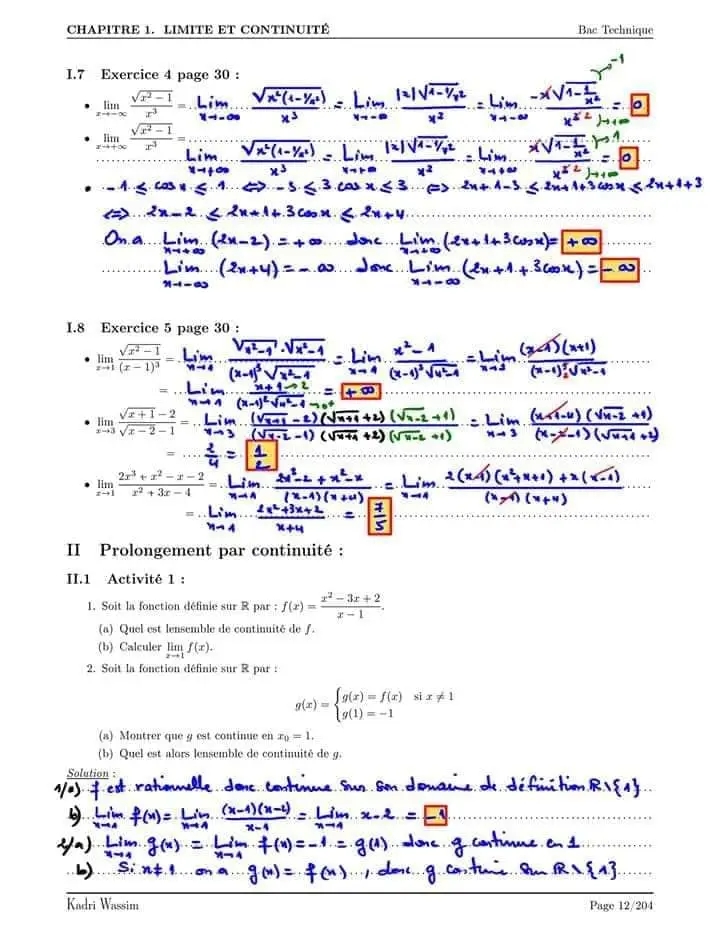 CHAPITRE 1. LIMITE ET CONTINUITÉ Bac Technique
I.7 Exercice 4 page 30 :
• lim x→−∞ √(x² − 1) / x³ = Lim x→−∞ √(x²(1−1/x²)) / x³ = Lim x→−∞ |x|√(1−1/x²) / x³ = Lim x→−∞ −x√(1−1/x²) →1 / x³ ² →+∞ = 0
• lim x→+∞ √(x² − 1) / x³ =
Lim x→+∞ √(x²(1−1/x²)) / x³ = Lim x→+∞ |x|√(1−1/x²) / x³ = Lim x→+∞ x√(1−1/x²) →1 / x³ ² →+∞ = 0
• −1 ≤ cos x ≤ 1 ⇔ −3 ≤ 3 cos x ≤ 3 ⇔ 2x+1−3 ≤ 2x+1+3cos x ≤ 2x+1+3
⇔ 2x−2 ≤ 2x+1+3cos x ≤ 2x+4
On a Lim x→+∞ (2x−2) = +∞ donc Lim x→+∞ (2x+1+3cos x) = +∞
Lim x→−∞ (2x+4) = −∞ donc Lim x→−∞ (2x+1+3cos x) = −∞
I.8 Exercice 5 page 30 :
• lim x→1 √(x² − 1) / (x − 1)³ = Lim x→1 √(x²−1) · √(x²−1) / (x−1)³ √(x²−1) = Lim x→1 x²−1 / (x−1)³ √(x²−1) = Lim x→1 (x−1)(x+1) / (x−1)³ ² √(x²−1)
= Lim x→1 x+1 →2 / (x−1)² √(x²−1) →0⁺ = +∞
• lim x→3 √(x + 1) − 2 / √(x − 2) − 1 = Lim x→3 (√(x+1) −2)(√(x+1) +2)(√(x−2) +1) / (√(x−2) −1)(√(x+1) +2)(√(x−2) +1) = Lim x→3 (x+1−4)(√(x−2) +1) / (x−2−1)(√(x+1) +2)
= 2/4 = 1/2
• lim x→1 2x³ + x² − x − 2 / x² + 3x − 4 = Lim x→1 2x³−2 + x²−x / (x−1)(x+4) = Lim x→1 2(x−1)(x²+x+1) + x(x−1) / (x−1)(x+4)
= Lim x→1 2x²+3x+2 / x+4 = 7/5
II Prolongement par continuité :
II.1 Activité 1 :
1. Soit la fonction définie sur ℝ par : f(x) = x² − 3x + 2 / x − 1.
(a) Quel est lensemble de continuité de f.
(b) Calculer lim x→1 f(x).
2. Soit la fonction définie sur ℝ par :
g(x) = { g(x) = f(x) si x ≠ 1
g(1) = −1
(a) Montrer que g est continue en x₀ = 1.
(b) Quel est alors lensemble de continuité de g.
Solution :
1/a) f est rationnelle donc continue sur son domaine de définition ℝ\{1}
b) Lim x→1 f(x) = Lim x→1 (x−1)(x−2) / x−1 = Lim x→1 x−2 = −1
2/a) Lim x→1 g(x) = Lim x→1 f(x) = −1 = g(1) donc g continue en 1
b) Si x≠1 on a g(x) = f(x), donc g continue sur ℝ\{1}
Kadri Wassim Page 12/204